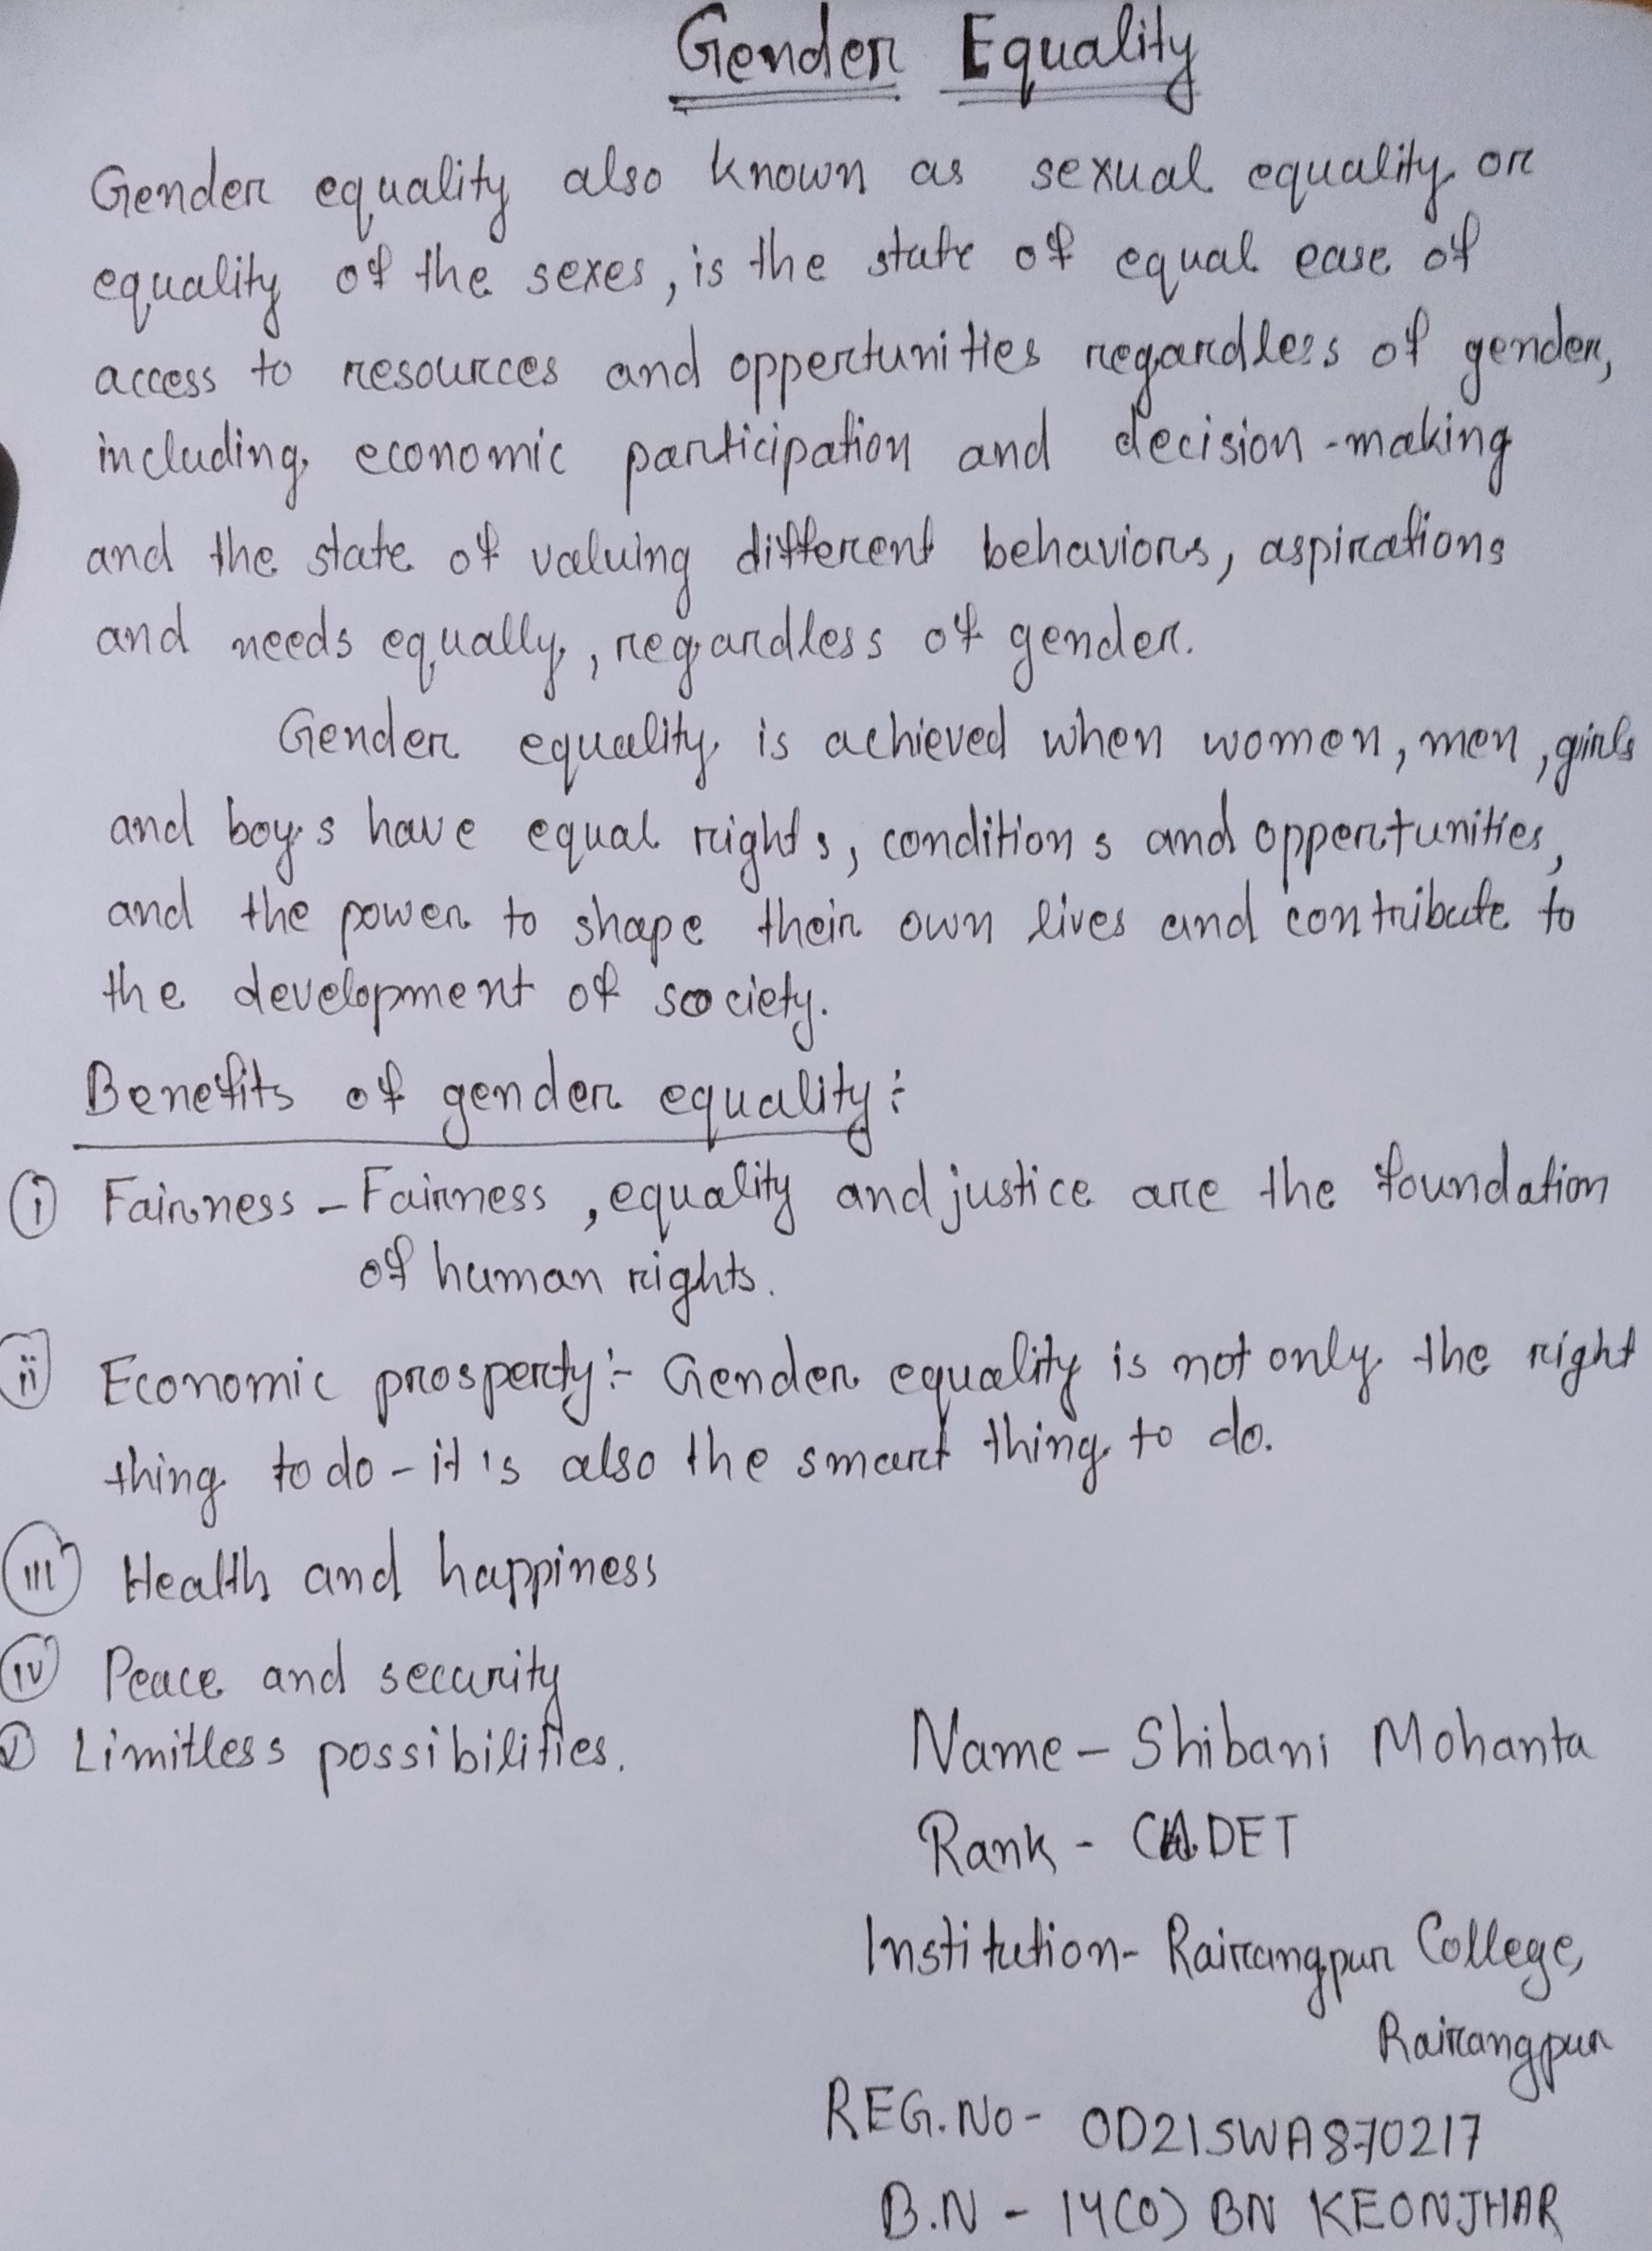 Gender Equality
Gender equality also known as sexual equality or
equality of the sexes, is the state of equal ease of
access to resources and oppertunities regardless of gender,
including economic participation and decision-making
and the state of valuing different behaviors, aspirations
and needs equally, regardless of gender.
Gender equality is achieved when women, men, girls
and boys have equal rights, conditions and oppertunities,
and the power to shape their own lives and contribute to
the development of society.
Benefits of gender equality:-
(i) Fairness - Fairness, equality and justice are the foundation
of human rights.
(ii) Economic prosperty:- Gender equality is not only the right
thing to do - it's also the smart thing to do.
(iii) Health and happiness
(iv) Peace and security
(v) Limitless possibilities.
Name - Shibani Mohanta
Rank - CADET
Institution - Rairangpur College,
Rairangpur
REG.No - OD21SWA870217
B.N - 14(O) BN KEONJHAR